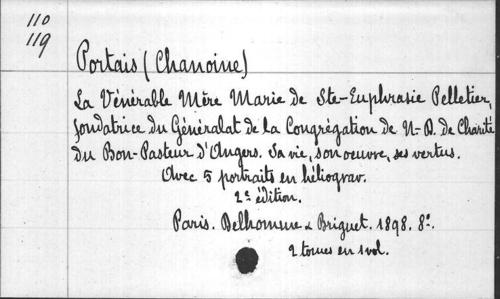 110
119
Portais (Chanoine)
La Vénérable Mère Marie de Ste-Euphrasie Pelletier,
fondatrice du Généralat de la Congrégation de N-D. de Charité
du Bon-Pasteur d'Angers. Sa vie, son oeuvre, ses vertus.
Avec 5 portraits en héliograv.
2e édition.
Paris. Delhomme & Briguet. 1898. 8º.
2 tomes en 1 vol.